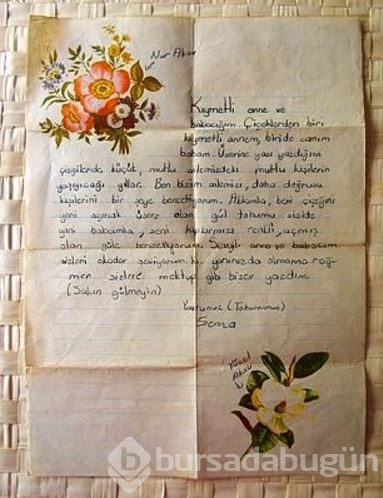 Nur Akav
Kıymetli anne ve
babacığım. Çiçeklerden biri
kıymetli annem, biride canım
babam. Üzerine yazı yazdığım
çizgilerde küçük, mutlu ailemizdeki mutlu kişilerin
yazgıcağı yıllar. Ben bizim ailemizi, daha doğrusu
kişilerini bir şeye benzetiyorum. Ablamla, beni çiçeğini
yeni açmak üzere olan gül tohumu sizide
yani babamla, seni kıpkırmızı renkli, açmış
olan güle benzetiyorum. Sevgili anne ve babacım
sizleri okadar seviyorum ki yanınızda olmama rağ-
men sizlere mektup gibi birşey yazdım.
(Sakın gülmeyin)
(Tohumunuz)
Sema
Yücel
Akav
bursadabugün